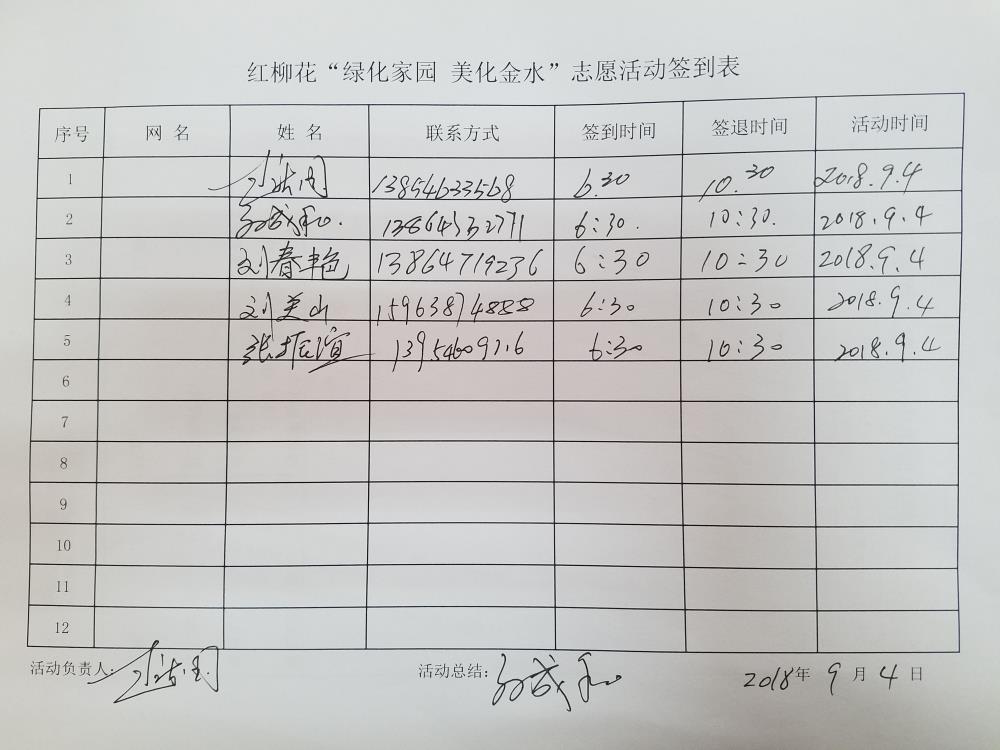 红柳花“绿化家园 美化金水”志愿活动签到表
序号 网 名 姓 名 联系方式 签到时间 签退时间 活动时间
1 13854633568 6.30 10.30 2018.9.4
2 孙成和. 6:30. 10:30. 2018.9.4
3 刘春艳 13864719236 6:30 10:30 2018.9.4
4 刘美山 15963874888 6:30 10:30 2018.9.4
5 张振谊 6:30 10:30 2018.9.4
6
7
8
9
10
11
12
活动负责人: 活动总结: 孙成和 2018年 9 月 4 日